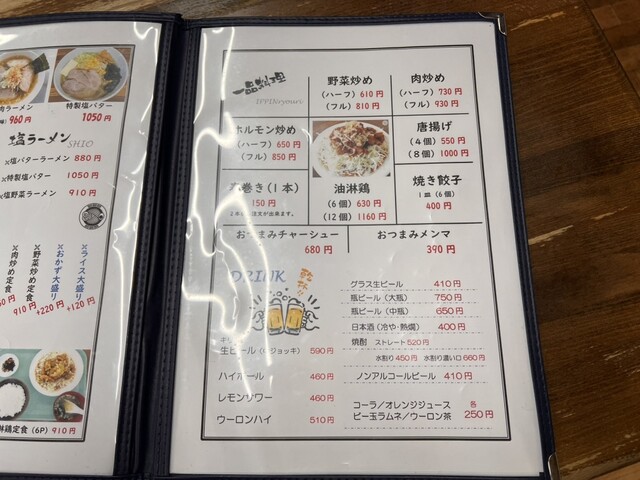 肉ラーメン
960円
特製塩バター
1050円
塩ラーメン SHIO
×塩バターラーメン 880円
×特製塩バター 1050円
×塩野菜ラーメン 910円
×ライス大盛り +120円
×おかず大盛り +220円
×野菜炒め定食 910円
×肉炒め定食
淋鶏定食 (6P) 910円
一品料理
IPPINryoury
野菜炒め
(ハーフ) 610円
(フル) 810円
肉炒め
(ハーフ) 730円
(フル) 930円
ホルモン炒め
(ハーフ) 650円
(フル) 850円
唐揚げ
(4個) 550円
(8個) 1000円
巻き(1本)
150円
油淋鶏
(6個) 630円
(12個) 1160円
焼き餃子
1皿 (6個)
400円
おつまみチャーシュー
680円
おつまみメンマ
390円
DRINK
生ビール 590円
ハイボール 460円
レモンサワー 460円
ウーロンハイ 510円
グラス生ビール 410円
瓶ビール (大瓶) 750円
瓶ビール (中瓶) 650円
日本酒 (冷や・熱燗) 400円
焼酎 ストレート520円
水割り450円 水割り濃い口660円
ノンアルコールビール 410円
コーラ/オレンジジュース 各
ビー玉ラムネ/ウーロン茶 250円